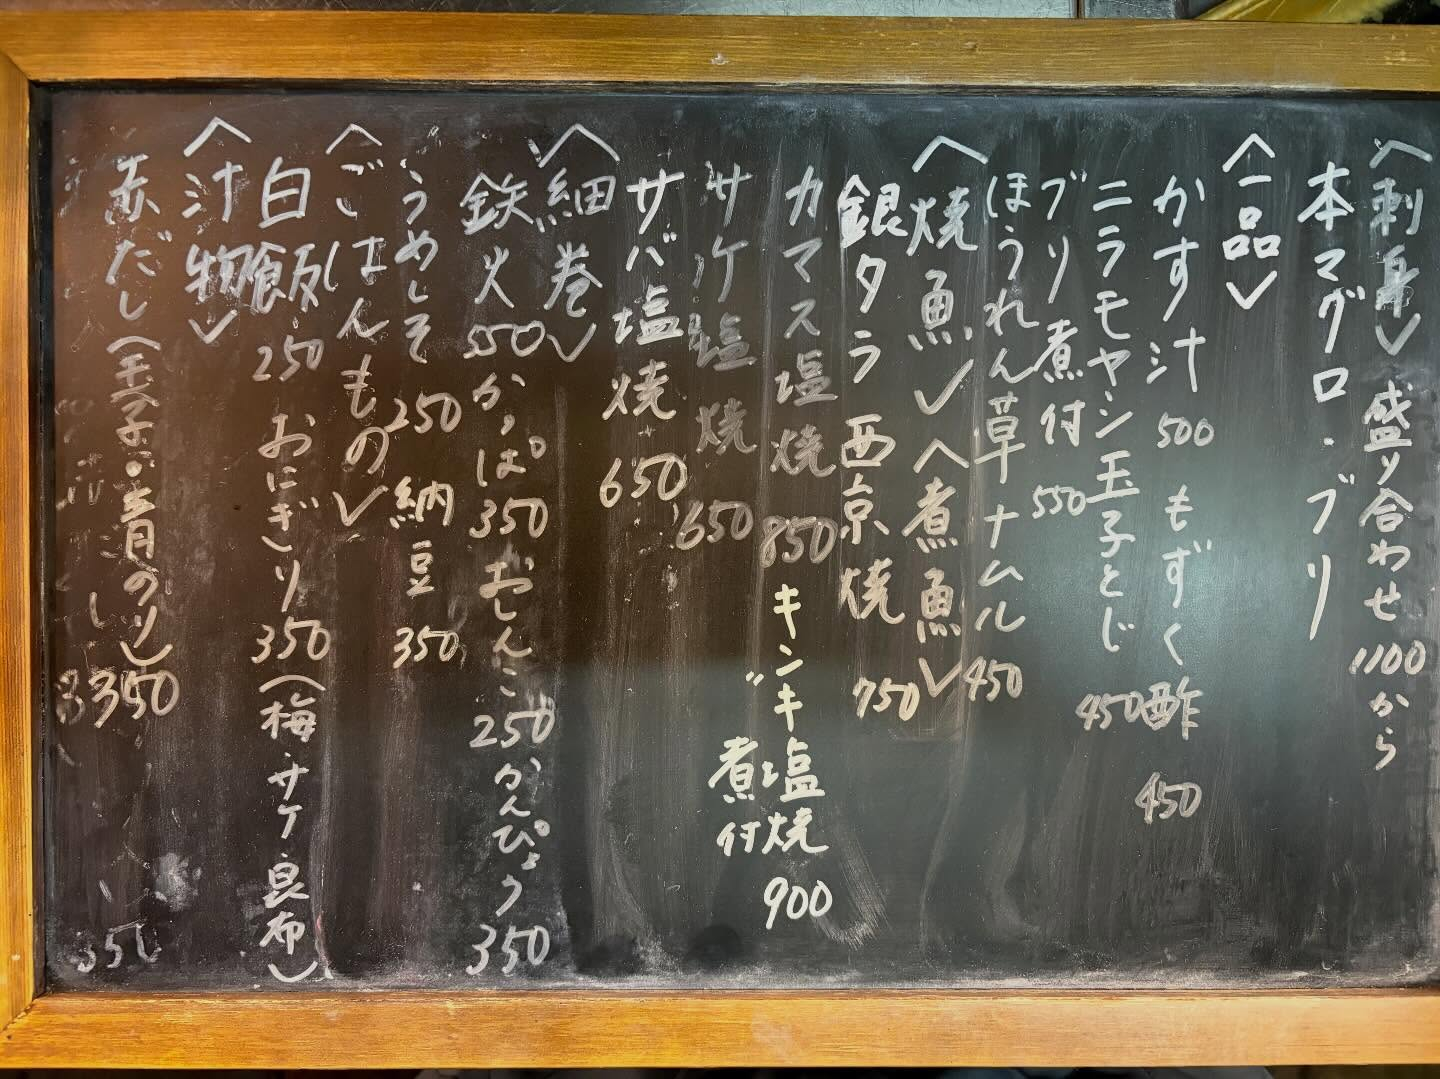 〈刺身〉盛り合わせ1100から
本マグロ・ブリ
〈一品〉
かす汁 500 もずく酢 450
ニラモヤシ玉子とじ 450
ブリ煮付 550
ほうれん草ナムル 450
〈焼魚〉〈煮魚〉
銀タラ西京焼 750
カマス塩焼 850 キンキ塩焼 900
サケ塩焼 650 〃 煮付
サバ塩焼 650
〈細巻〉
鉄火 550 かっぱ 350 おしんこ 250 かんぴょう 350
うめしそ 250 納豆 350
〈ごはんもの〉
白飯 250 おにぎり 350(梅・サケ・昆布)
〈汁物〉
赤だし(玉子・青のり) 350